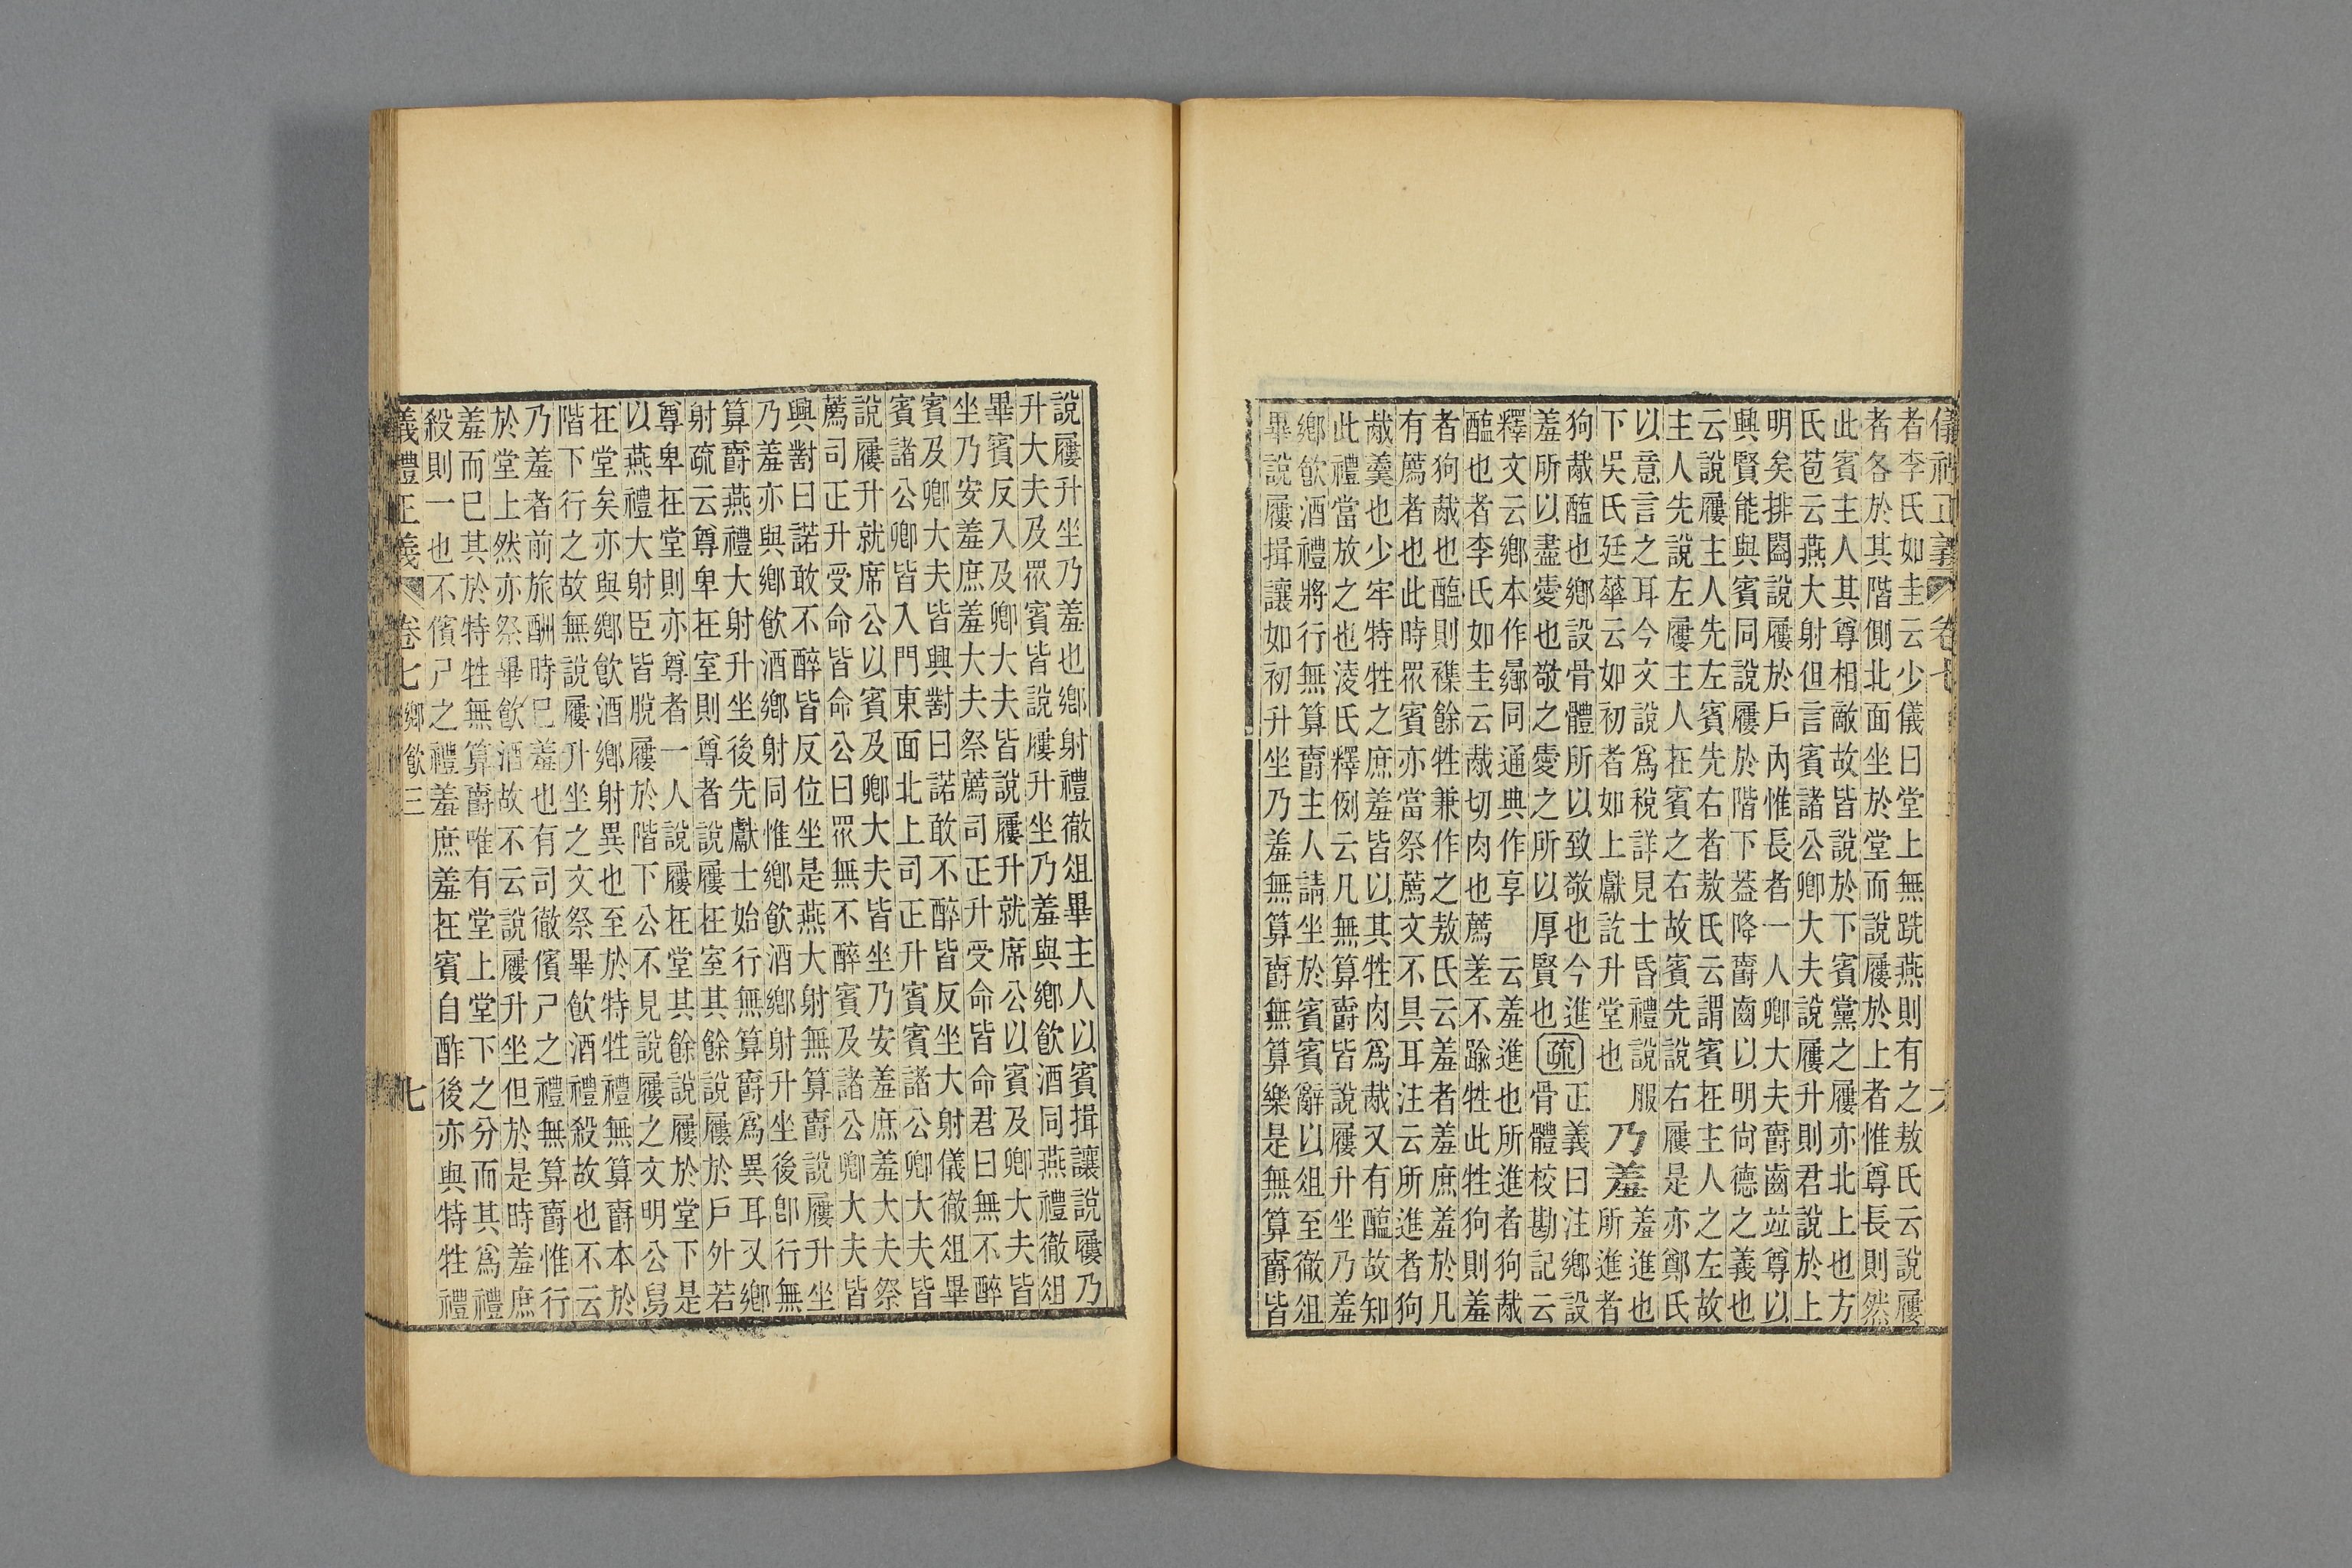 儀禮正義 卷七
者李氏如圭云少儀曰堂上無跣燕則有之敖氏云說屨
者各於其階側北面坐於堂而說屨於上者惟尊長則然
此賓主人其尊相敵故皆說於下賓黨之屨亦北上也方
氏苞云燕大射但言賓諸公卿大夫說屨升則君說於上
明矣排闔說屨於戶內惟長者一人卿大夫爵齒竝尊以
興賢能與賓同說屨於階下葢降爵齒以明尙德之義也
云說屨主人先左賓先右者敖氏云謂賓在主人之左故
主人先說左屨主人在賓之右故賓先說右屨是亦鄭氏
以意言之耳今文說爲稅詳見士昏禮說服
下吳氏廷華云如初者如上獻訖升堂也
乃羞
羞進也
所進者
狗胾醢也鄉設骨體所以致敬也今進
羞所以盡愛也敬之愛之所以厚賢也
疏
正義曰注鄉設
骨體校勘記云
釋文云鄉本作曏同通典作享
云羞進也所進者狗胾
醢也者李氏如圭云胾切肉也薦羞不踰牲此牲狗則羞
者狗胾也醢則襍餘牲兼作之敖氏云羞者羞庶羞於凡
有薦者也此時眾賓亦當祭薦文不具耳注云所進者狗
胾羹也少牢特牲之庶羞皆以其牲肉爲胾又有醢故知
此禮當放之也淩氏釋例云凡無算爵皆說屨升坐乃羞
鄉飮酒禮將行無算爵主人請坐於賓賓辭以俎至徹俎
畢說屨揖讓如初升坐乃羞無算爵無算樂是無算爵皆
說屨升坐乃羞也鄉射禮徹俎畢主人以賓揖讓說屨乃
升大夫及眾賓皆說屨升坐乃羞與鄉飮酒同燕禮徹俎
畢賓反入及卿大夫皆說屨升就席公以賓及卿大夫皆
坐乃安羞庶羞大夫祭薦司正升受命皆命君曰無不醉
賓及卿大夫皆興對曰諾敢不醉皆反坐大射儀徹俎畢
賓諸公卿皆入門東面北上司正升賓賓諸公卿大夫皆
說屨升就席公以賓及卿大夫皆坐乃安羞庶羞大夫祭
薦司正升受命皆命公曰眾無不醉賓及諸公卿大夫皆
興對曰諾敢不醉皆反位坐是燕大射無算爵說屨升坐
乃羞亦與鄉飮酒鄉射同惟鄉飮酒鄉射升坐後卽行無
算爵燕禮大射升坐後先獻士始行無算爵爲異耳又鄉
射疏云尊卑在室則尊者說屨在室其餘說屨於戶外若
尊卑在堂則亦尊者一人說屨在堂其餘說屨於堂下是
以燕禮大射臣皆脫屨於階下公不見說屨之文明公舄
在堂矣亦與鄉飮酒鄉射異也至於特牲禮無算爵本於
階下行之故無說屨升坐之文祭畢飮酒禮殺故也不云
乃羞者前旅酬時已羞也有司徹儐尸之禮無算爵惟行
於堂上然亦祭畢飮酒故不云說屨升坐但於是時羞庶
羞而已其於特牲無算爵唯有堂上堂下之分而其爲禮
殺則一也不儐尸之禮羞庶羞在賓自酢後亦與特牲禮
儀禮正義 卷七 鄉飮三 七